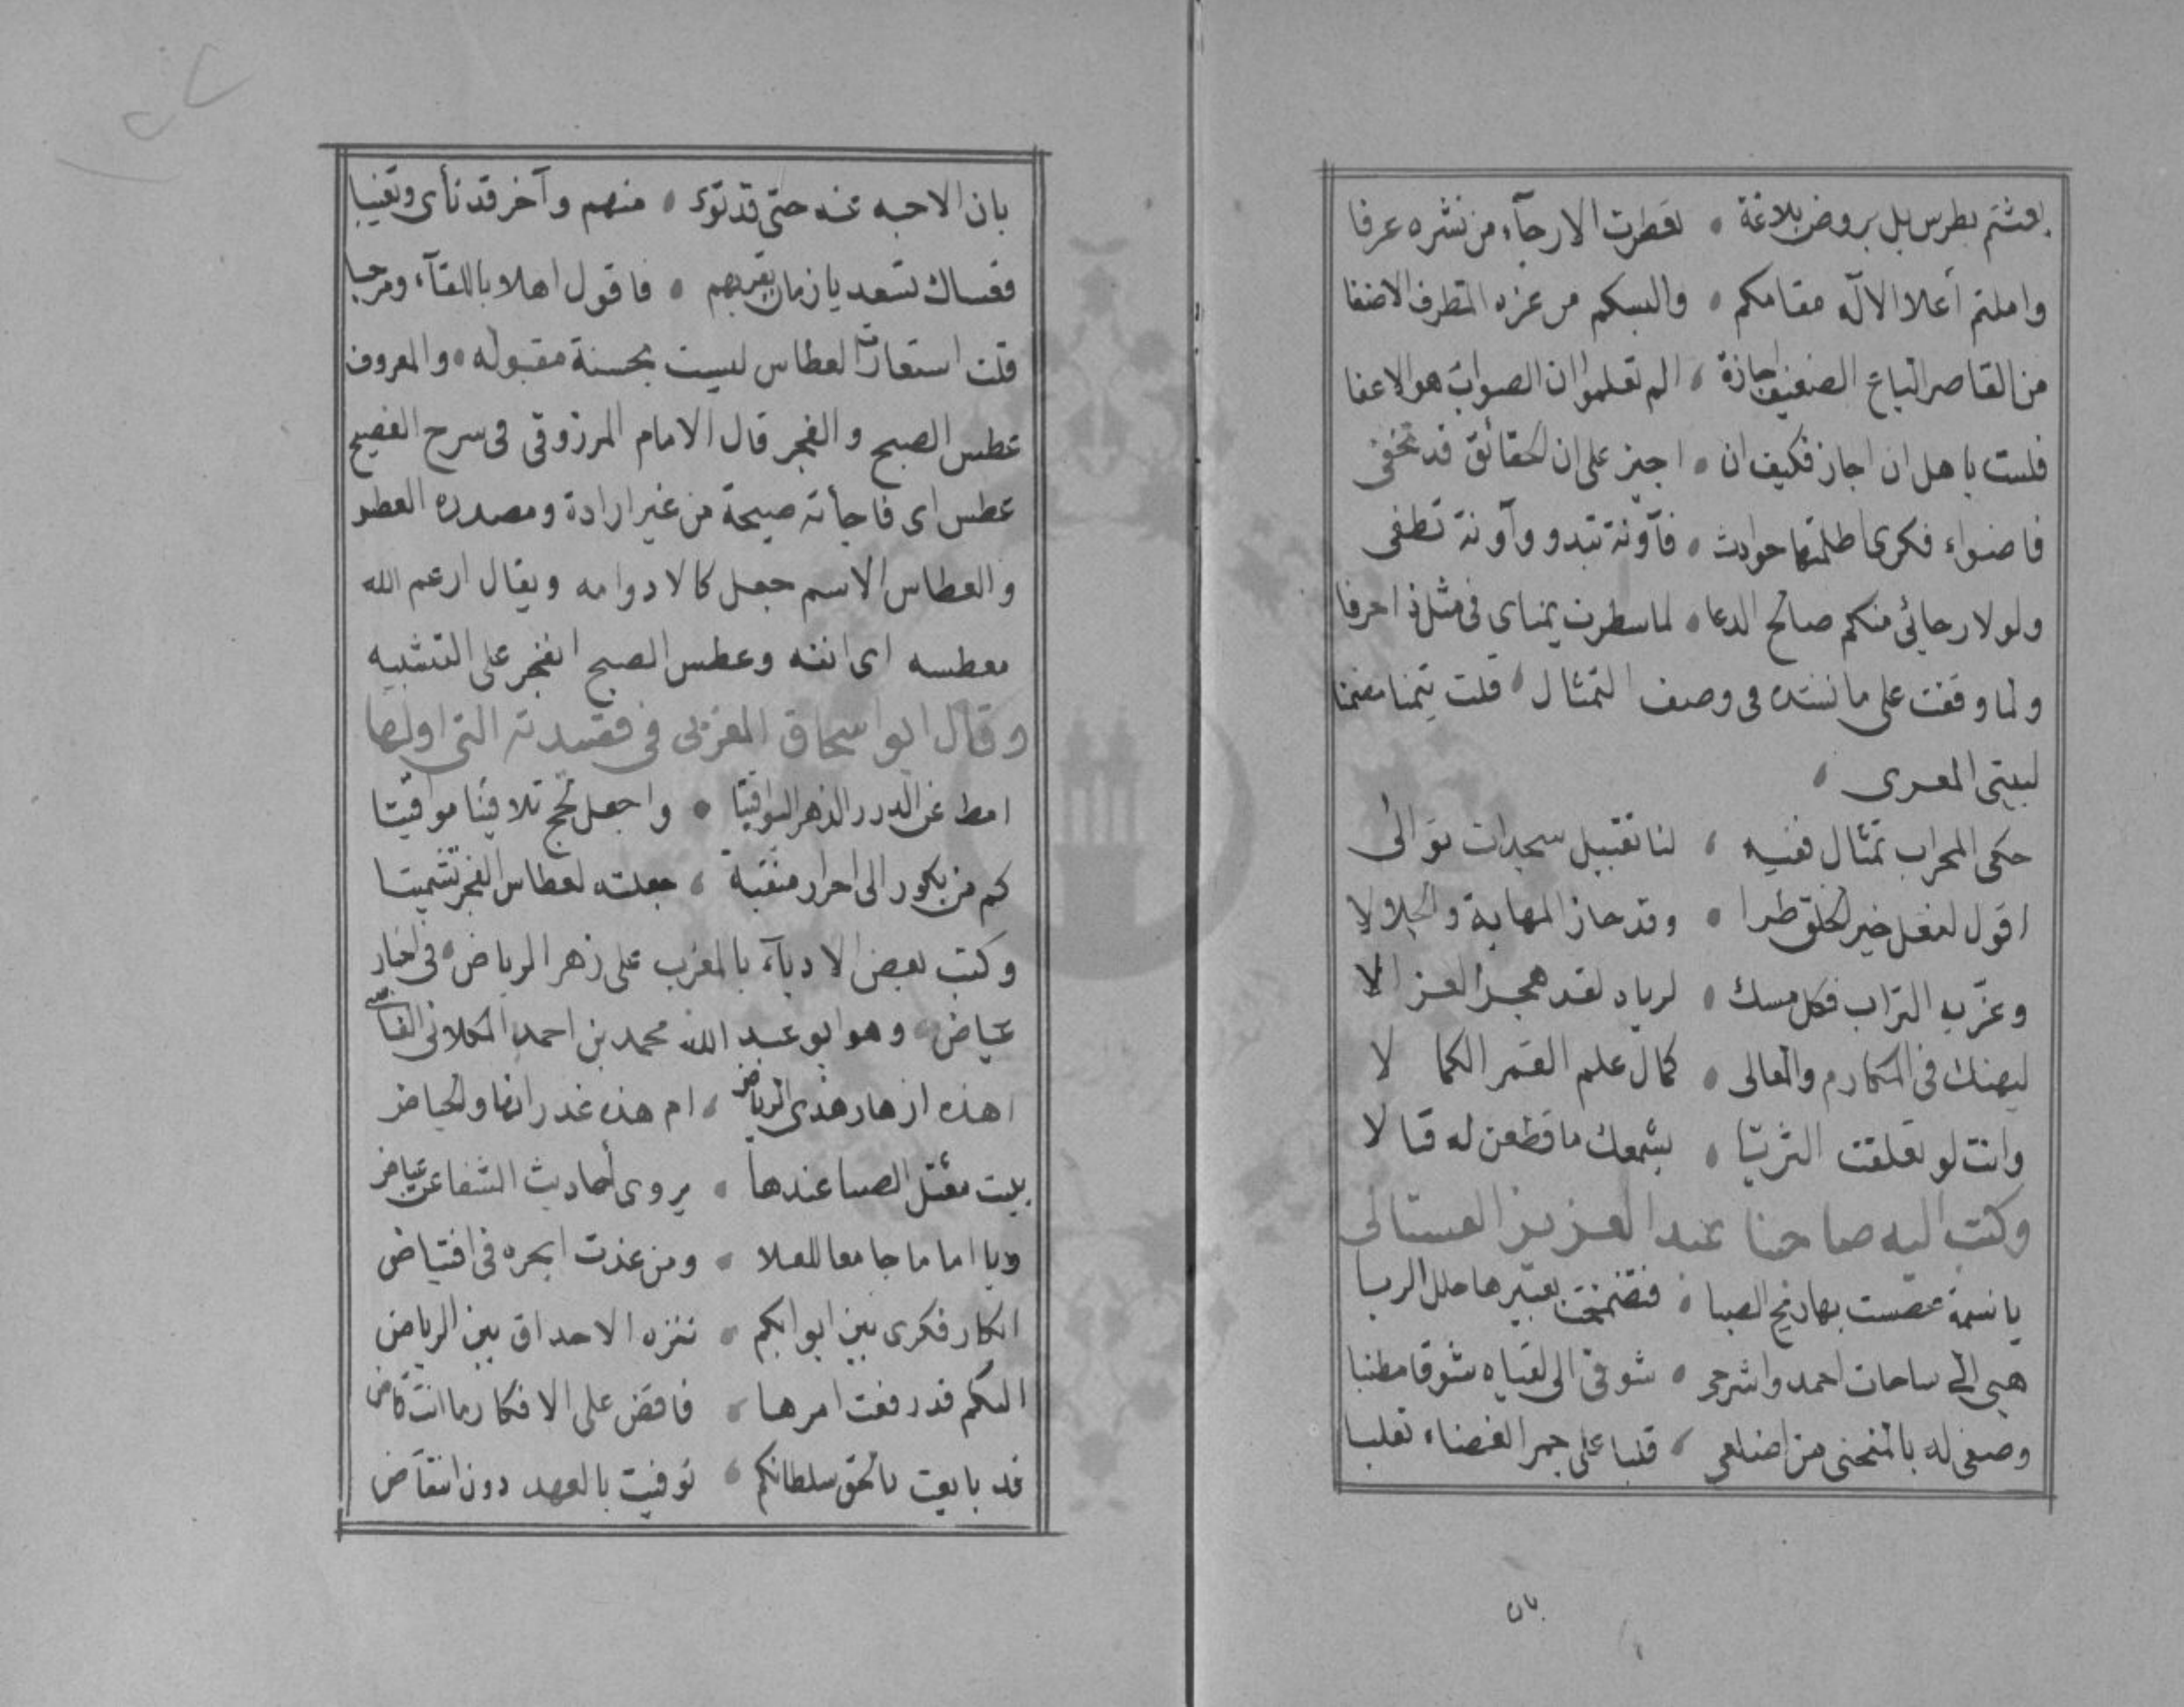 بعثتم بطرس بل بروض بلاغة ، تعطرت الارجاء من نشره عرفا
واملتم أعلا الالّه مقامكم ، والبسكم من عزه المطرف الاضفا
من القاصر الباع الضعيف اجازة ، الم تعلموا ان الصواب هو الاعفا
فلست باهل ان اجاز فكيف ان ، اجيز على ان الحقائق قد تخفى
فاضواء فكرى اظلمتها حوادث ، فآونة تبدو وآونة تطفى
ولولا رجائى منكم صالح الدعا ، لما سطرت يمناى فى مثل ذا حرفا
ولما وقفت على ما نشده فى وصف التمثال ، قلت تيمنا مضمنا
لبيتى المعرى ،
حكى المحراب تمثال ففيه ، لنا تقبيل سجدات توالى
اقول لنعل خير الخلق طرا ، وقد حاز المهابة والجلالا
وعزّ به التراب فكل مسك ، لرياه لقد هجر الغزالا
ليهنك فى المكارم والمعالى ، كمال علم القمر الكمالا
وانت لو تعلقت الثريا ، بشسعك ما قطعن له قبالا
وكتب اليه صاحبنا عبد العزيز الفستالى
يا نسمة عطست بها ريح الصبا ، فتضمخت بعبيرها حلل الربا
هبى الى ساحات احمد واشرحى ، شوقى الى لقياه شوقا مطنبا
وصفى له بالمنحنى من اضلعى ، قلبا على جمر الغضاء تقلبا
بان
بان الاحبه عنه حتى قد توى ، منهم وآخر قد نأى وتغيبا
فعساك تسعد يا زمان بقربهم ، فاقول اهلا باللقآء ومرحبا
قلت استعارة العطاس ليست بحسنة مقبوله ، والمعروف
عطس الصبح والفجر قال الامام المرزوقى فى شرح الفصيح
عطس اى فاجأته صيحة من غير ارادة ومصدره العطس
والعطاس الاسم جعل كالادوا مه ويقال ارغم الله
معطسه اى انفه وعطس الصبح انفجر على التشبيه
وقال ابو اسحاق الغزى فى قصيدته التى اولها
امط عن الدرر الزهر اليواقيتا ، واجعل لحج تلاقينا مواقيتا
كم من بكور الى احرار منقبة ، جعلته لعطاس الفجر تشميتا
وكتب بعض الادبآء بالمغرب على زهر الرياض ، فى اخبار
عياض ، وهو ابو عبد الله محمد بن احمد المكلاتى الفاسى
اهذه ازهار هذى الرياض ، ام هذه غدرانها والحياض
يبيت معتل الصبا عندها ، يروى أحاديث الشفا عن عياض
ويا اماما جامعا للعلا ، ومن غدت ابحره فى افتياض
ابكار فكرى بين ابوابكم ، تنزه الاحداق بين الرياض
اليكم قد رفعت امرها ، فاقض على الافكار ما انت قاض
قد بايعت بالحق سلطانكم ، توفيت بالعهد دون انتقاض